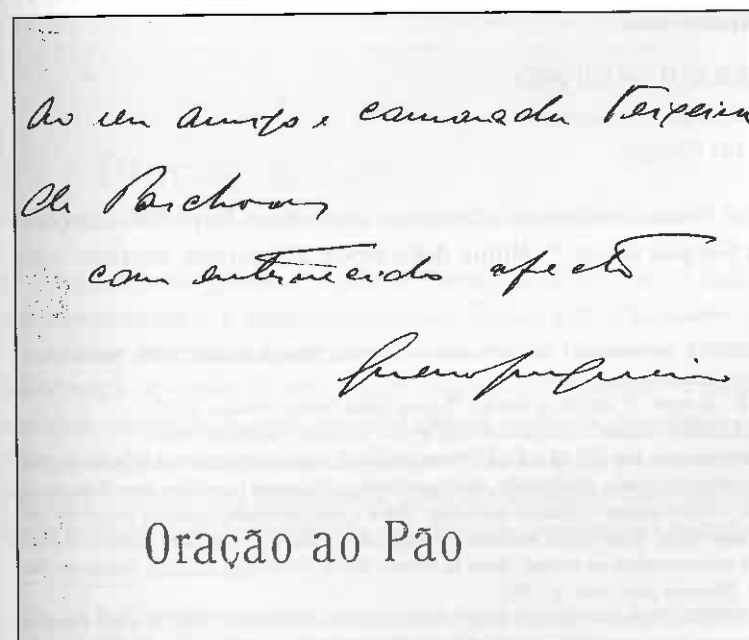 Ao seu amigo e camarada Teixeira
de Paschoaes
com enternecido afecto
Guerra Junqueiro
Oração ao Pão